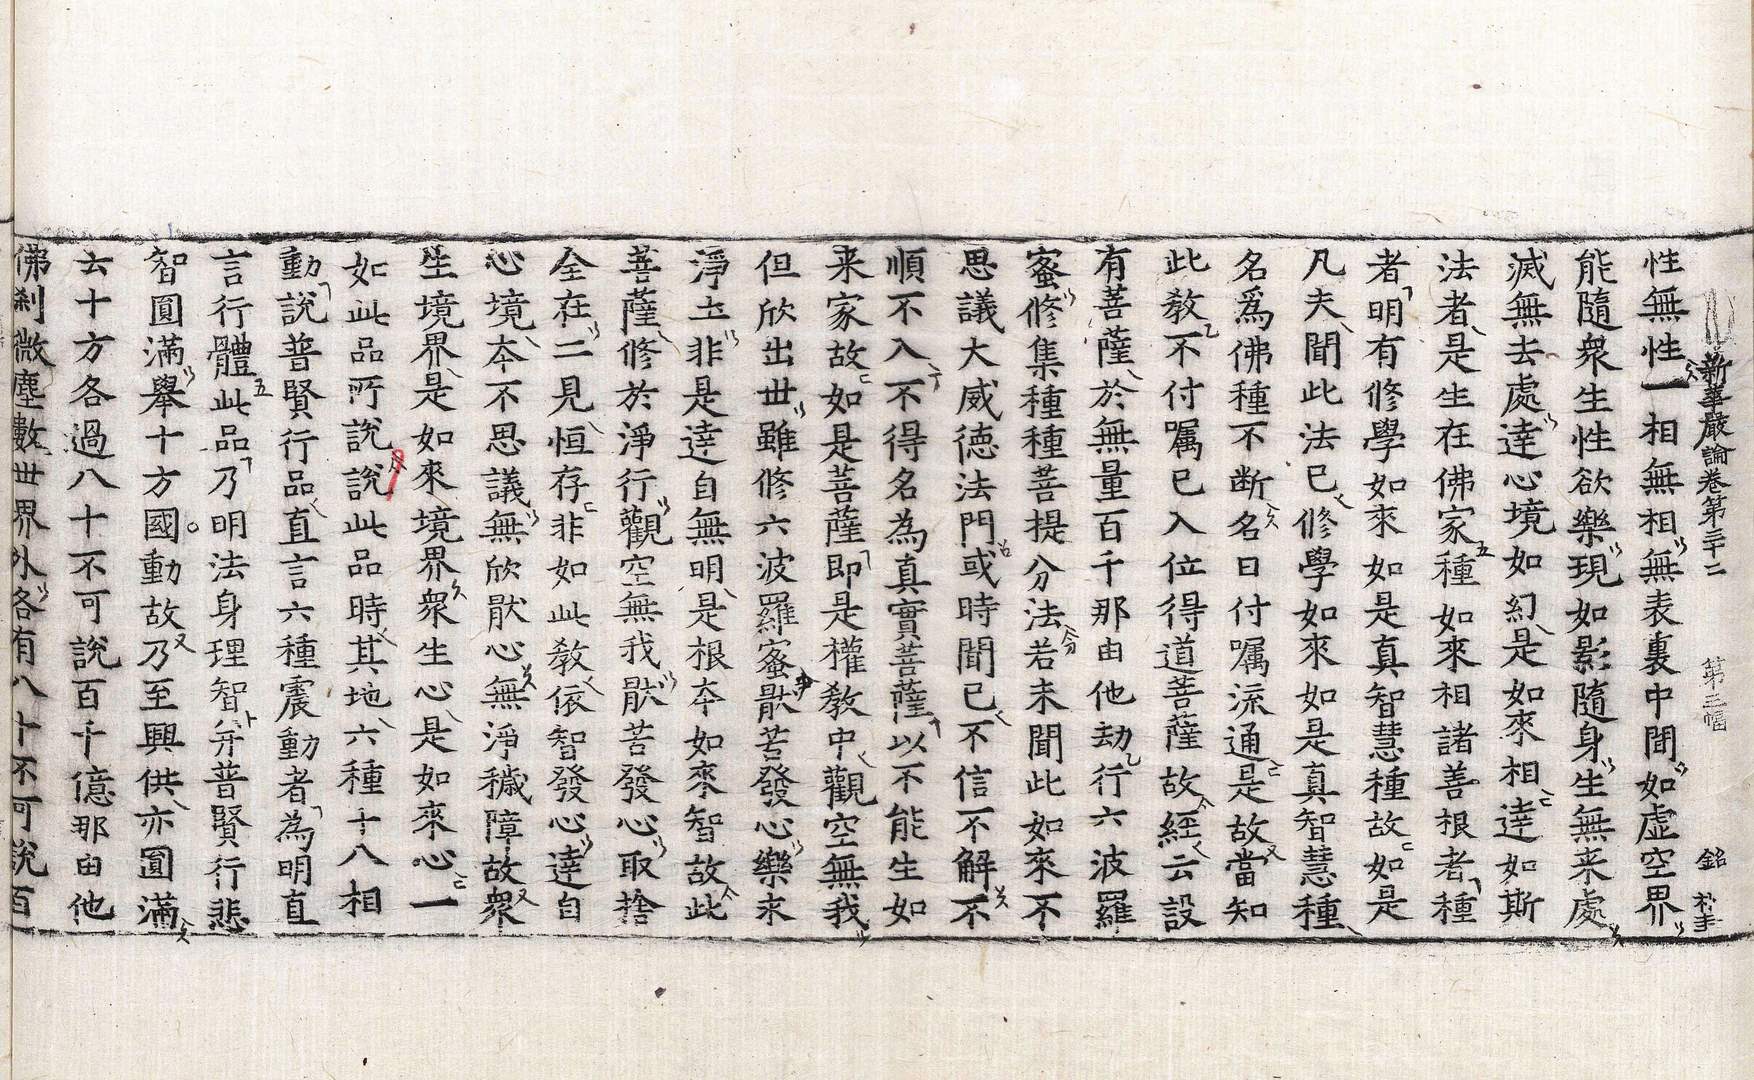 新華嚴論卷第三十二 第三幅 銘
性無性一相無相無表裏中間如虛空界
能隨衆生性欲樂現如影隨身生無来處
滅無去處達心境如幻是如來相達如斯
法者是生在佛家種如來相諸善根者種
者明有修學如來如是真智慧種故如是
凡夫聞此法已修學如來如是真智慧種
名爲佛種不断名曰付嘱流通是故當知
此教不付嘱已入位得道菩薩故經云設
有菩薩於無量百千那由他劫行六波羅
蜜修集種種菩提分法若未聞此如來不
思議大威德法門或時聞已不信不解不
順不入不得名為真實菩薩以不能生如
来家故如是菩薩即是權教中觀空無我
但欣出世雖修六波羅蜜猒苦發心樂求
淨土非是達自無明是根夲如來智故此
菩薩修於淨行觀空無我猒苦發心取捨
全在二見恒存非如此教依智發心達自
心境夲不思議無欣猒心無淨穢障故衆
生境界是如來境界衆生心是如來心一
如此品所說說此品時其地六種十八相
動說普賢行品直言六種震動者為明直
言行體此品乃明法身理智并普賢行悲
智圓滿舉十方國動故乃至興供亦圓滿
去十方各過八十不可說百千億那由他
佛刹微塵數世界外各有八十不可說百